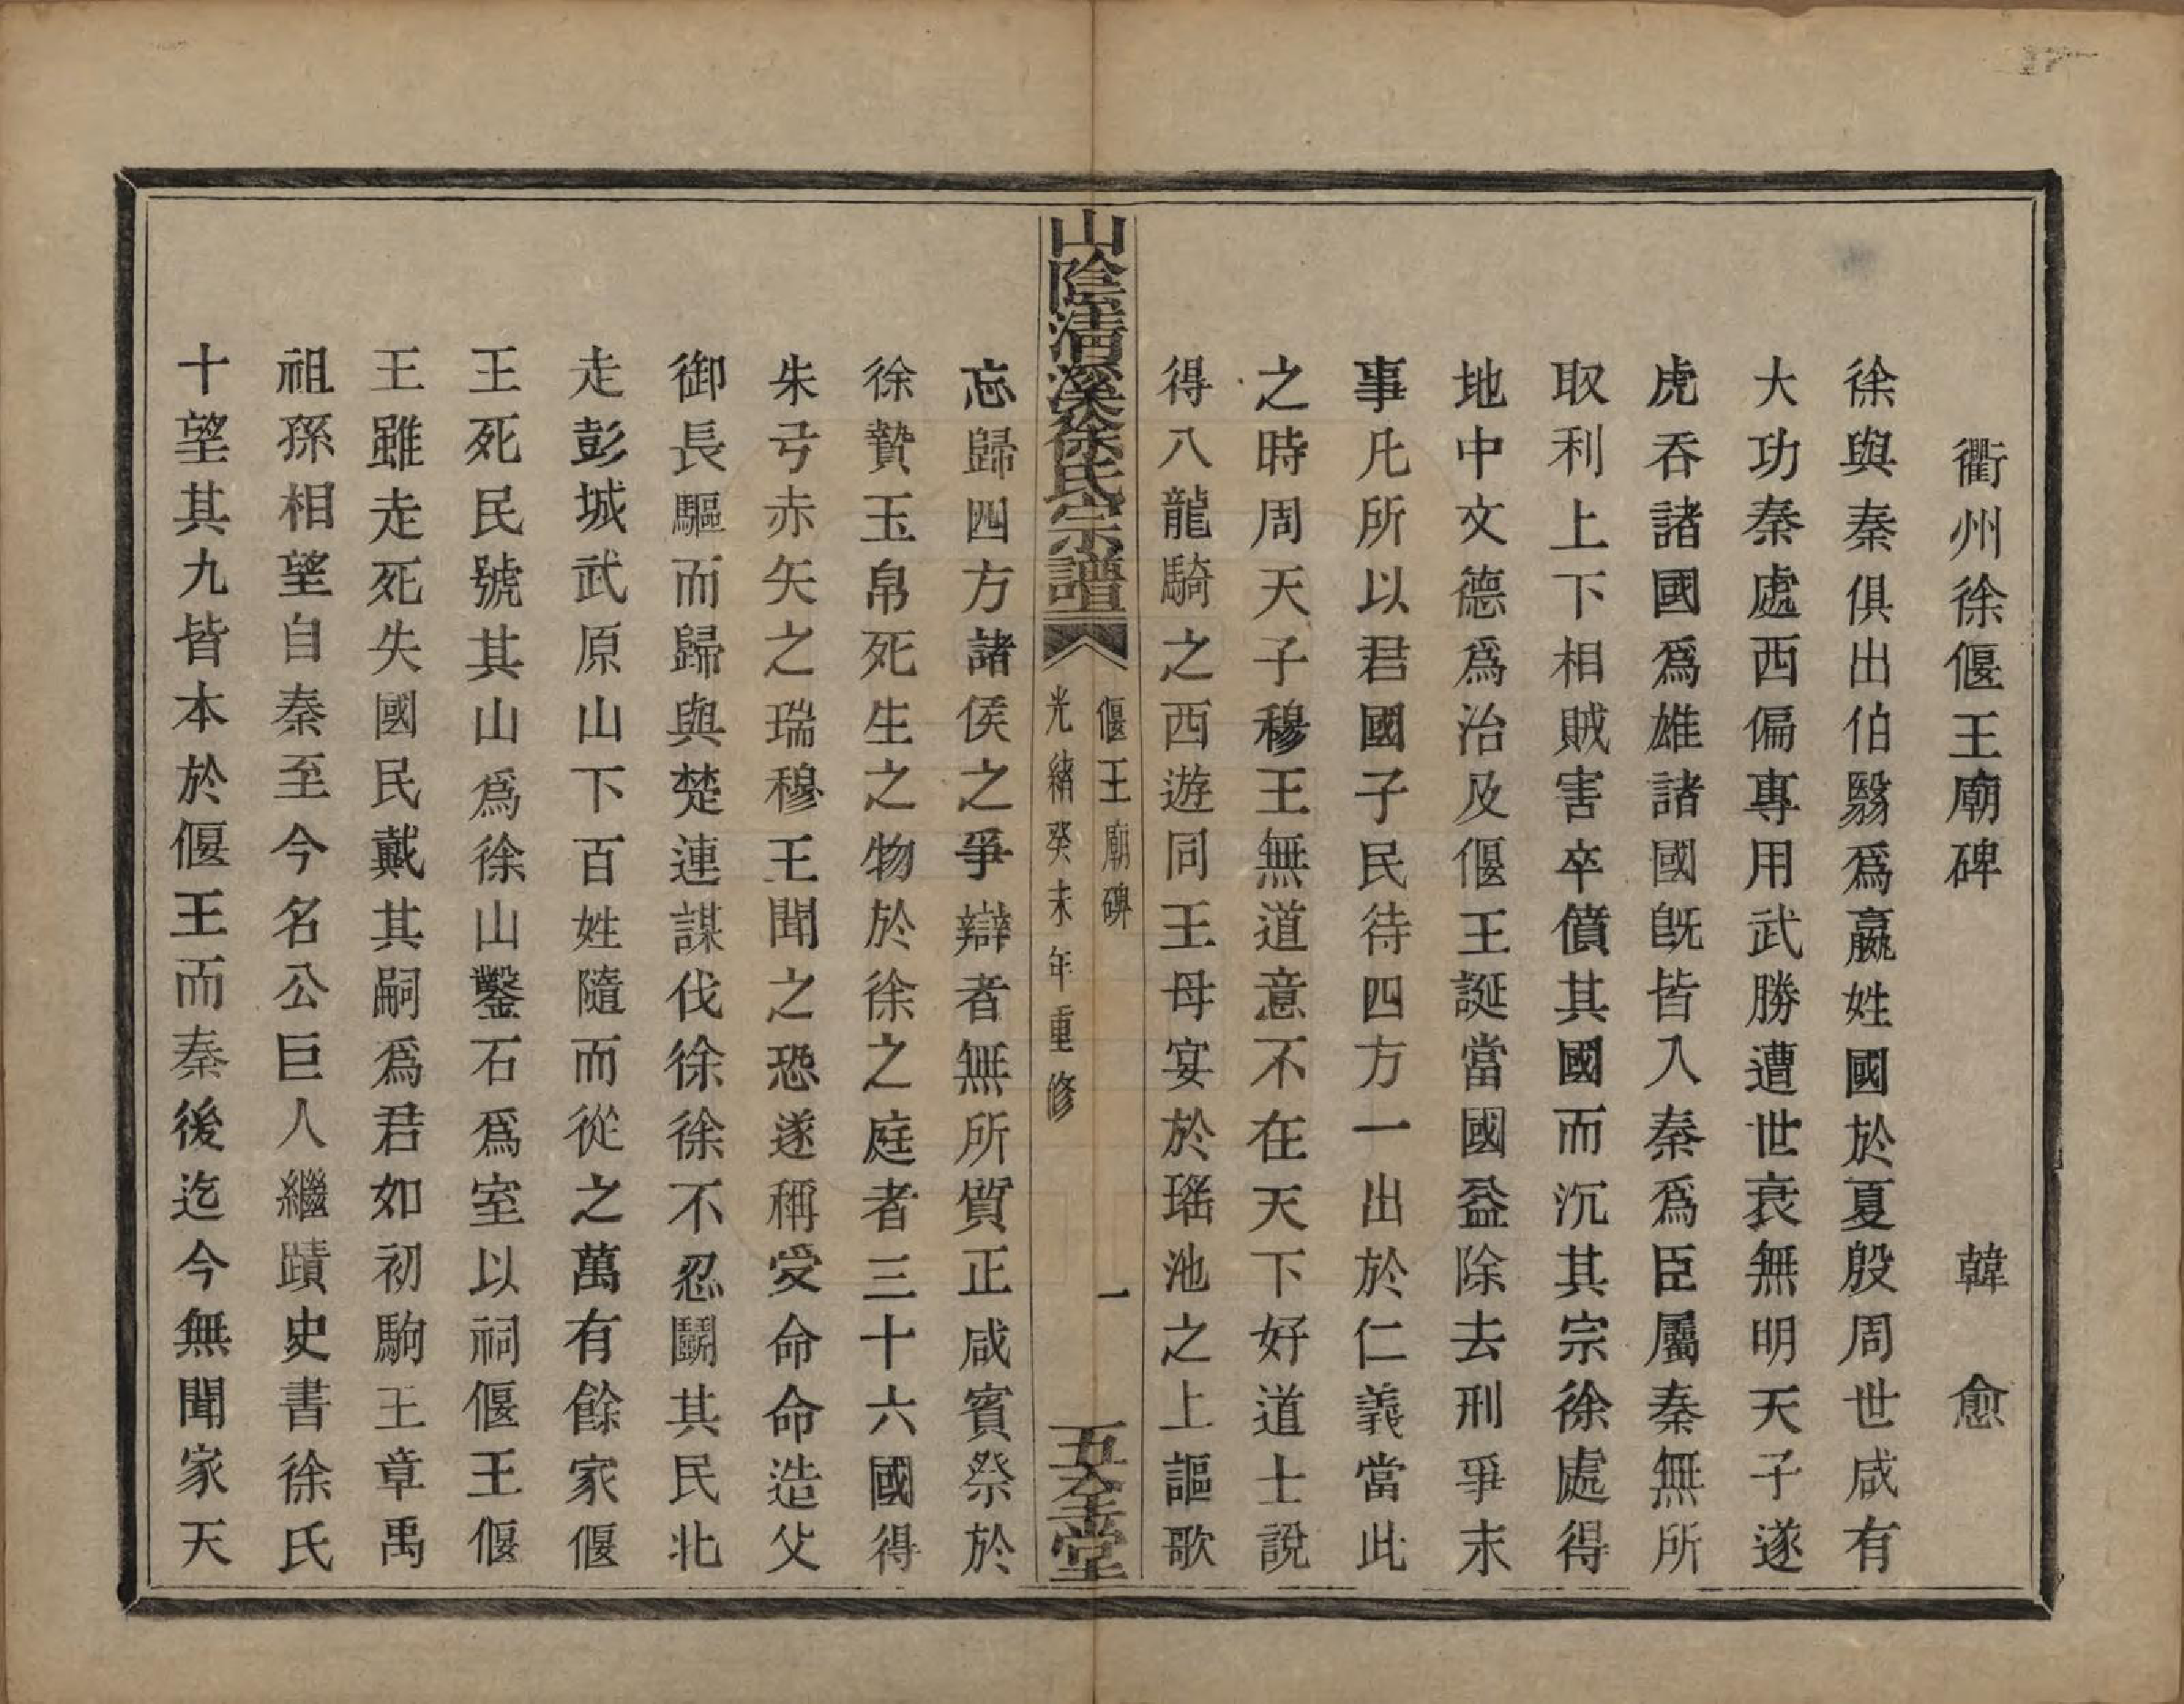 衢州徐偃王廟碑　韓愈
徐與秦俱出伯翳爲嬴姓國於夏殷周世咸有
大功秦處西偏專用武勝遭世衰無明天子遂
虎吞諸國爲雄諸國旣皆入秦爲臣屬秦無所
取利上下相賊害卒僨其國而沉其宗徐處得
地中文德爲治及偃王誕當國益除去刑爭末
事凡所以君國子民待四方一出於仁義當此
之時周天子穆王無道意不在天下好道士說
得八龍騎之西遊同王母宴於瑤池之上謳歌
山陰清溪徐氏宗譜
偃王廟碑
一
光緒癸未年重修
五全堂
忘歸四方諸侯之爭辯者無所質正咸賓祭於
徐贄玉帛死生之物於徐之庭者三十六國得
朱弓赤矢之瑞穆王聞之恐遂稱受命命造父
御長驅而歸與楚連謀伐徐徐不忍鬭其民北
走彭城武原山下百姓隨而從之萬有餘家偃
王死民號其山爲徐山鑿石爲室以祠偃王偃
王雖走死失國民戴其嗣爲君如初駒王章禹
祖孫相望自秦至今名公巨人繼蹟史書徐氏
十望其九皆本於偃王而秦後迄今無聞家天